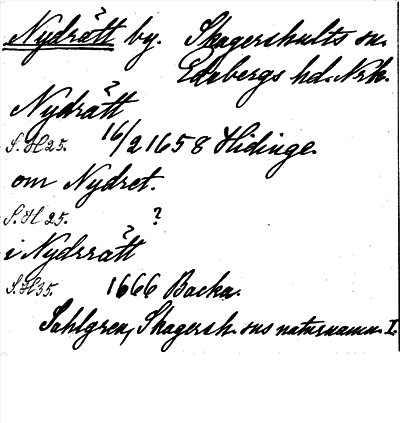 Nydrått by. Skagershults sn.
Edsbergs hd. Nrk.
Nydrått
S.H 25. 16/2 1658 Hidinge.
om Nydret.
S.H 25. ?
i Nydrrått
S.H 35. 1666 Backa.
Sahlgren, Skagersh. sns naturnamn. I.